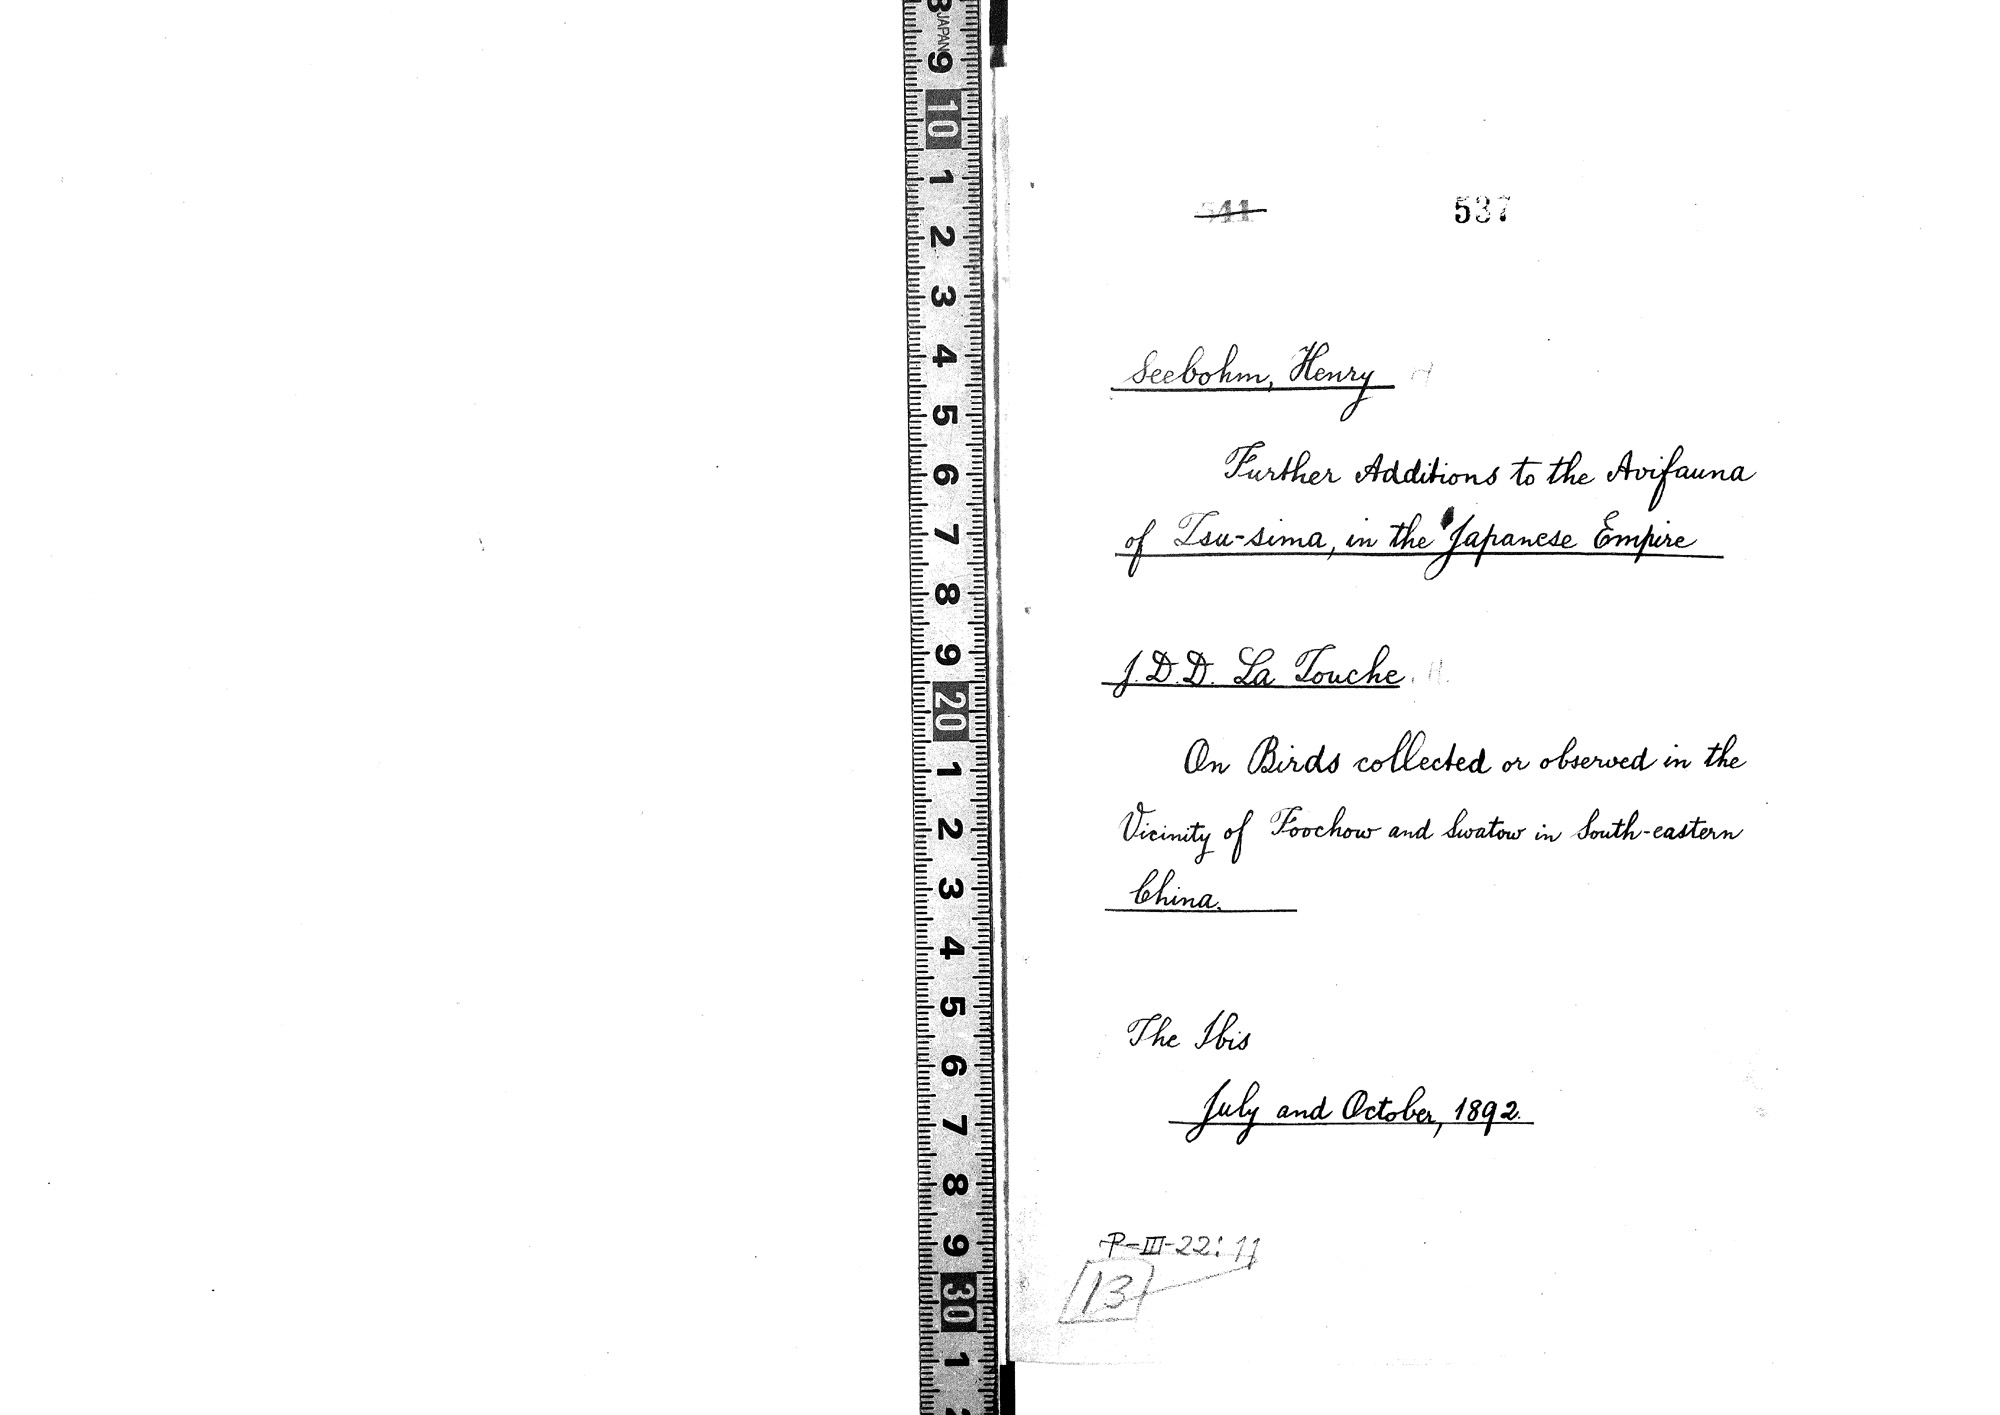 541 537
Seebohm, Henry
Further Additions to the Avifauna
of Tsu-sima, in the Japanese Empire
J. D. D. La Touche.
On Birds collected or observed in the
Vicinity of Foochow and Swatow in South-eastern
China.
The Ibis
July and October, 1892.
P-III-22: 11
13
JAPAN
9
10
1
2
3
4
5
6
7
8
9
20
1
2
3
4
5
6
7
8
9
30
1